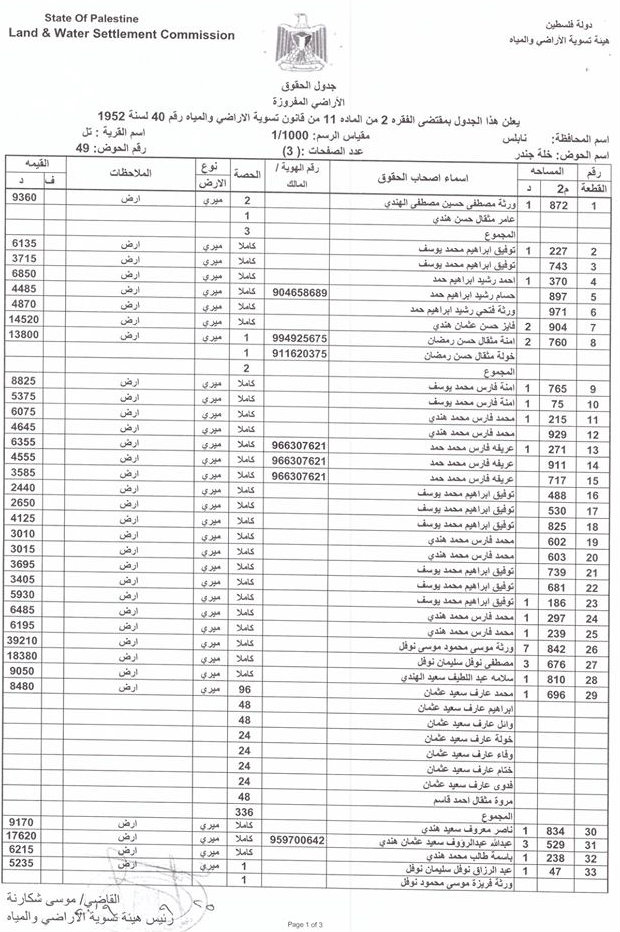 State Of Palestine
Land & Water Settlement Commission
دولة فلسطين
هيئة تسوية الأراضي والمياه
جدول الحقوق
الأراضي المفروزة
يعلن هذا الجدول بمقتضى الفقره 2 من الماده 11 من قانون تسوية الاراضي والمياه رقم 40 لسنة 1952
اسم المحافظة: نابلس مقياس الرسم: 1/1000 اسم القرية : تل
اسم الحوض: خلة جندر عدد الصفحات: ( 3 ) رقم الحوض: 49
رقم القطعة المساحه م2 د اسماء اصحاب الحقوق رقم الهوية / المالك الحصة نوع الارض الملاحظات القيمه ف د
1 872 1 ورثة مصطفى حسين مصطفى الهندي 2 ميري ارض 9360
عامر مثقال حسن هندي 1
المجموع 3
2 227 1 توفيق ابراهيم محمد يوسف كاملا ميري ارض 6135
3 743 توفيق ابراهيم محمد يوسف كاملا ميري ارض 3715
4 370 1 احمد رشيد ابراهيم حمد كاملا ميري ارض 6850
5 897 حسام رشيد ابراهيم حمد 904658689 كاملا ميري ارض 4485
6 971 ورثة فتحي رشيد ابراهيم حمد كاملا ميري ارض 4870
7 904 2 فايز حسن عثمان هندي كاملا ميري ارض 14520
8 760 2 امنة مثقال حسن رمضان 994925675 1 ميري ارض 13800
خولة مثقال حسن رمضان 911620375 1
المجموع 2
9 765 1 امنة فارس محمد يوسف كاملا ميري ارض 8825
10 75 1 امنة فارس محمد يوسف كاملا ميري ارض 5375
11 215 1 محمد فارس محمد هندي كاملا ميري ارض 6075
12 929 محمد فارس محمد هندي كاملا ميري ارض 4645
13 271 1 عريفه فارس محمد حمد 966307621 كاملا ميري ارض 6355
14 911 عريفه فارس محمد حمد 966307621 كاملا ميري ارض 4555
15 717 عريفه فارس محمد حمد 966307621 كاملا ميري ارض 3585
16 488 توفيق ابراهيم محمد يوسف كاملا ميري ارض 2440
17 530 توفيق ابراهيم محمد يوسف كاملا ميري ارض 2650
18 825 توفيق ابراهيم محمد يوسف كاملا ميري ارض 4125
19 602 محمد فارس محمد هندي كاملا ميري ارض 3010
20 603 محمد فارس محمد هندي كاملا ميري ارض 3015
21 739 توفيق ابراهيم محمد يوسف كاملا ميري ارض 3695
22 681 توفيق ابراهيم محمد يوسف كاملا ميري ارض 3405
23 186 1 توفيق ابراهيم محمد يوسف كاملا ميري ارض 5930
24 297 1 محمد فارس محمد هندي كاملا ميري ارض 6485
25 239 1 محمد فارس محمد هندي كاملا ميري ارض 6195
26 842 7 ورثة موسى محمود موسى نوفل كاملا ميري ارض 39210
27 676 3 مصطفى نوفل سليمان نوفل كاملا ميري ارض 18380
28 810 1 سلامه عبد اللطيف سعيد الهندي كاملا ميري ارض 9050
29 696 1 محمد عارف سعيد عثمان 96 ميري ارض 8480
ابراهيم عارف سعيد عثمان 48
وائل عارف سعيد عثمان 48
خولة عارف سعيد عثمان 24
وفاء عارف سعيد عثمان 24
ختام عارف سعيد عثمان 24
فدوى عارف سعيد عثمان 24
مروة مثقال احمد قاسم 48
المجموع 336
30 834 1 ناصر معروف سعيد هندي كاملا ميري ارض 9170
31 529 3 عبدالله عبدالرؤوف سعيد عثمان هندي 959700642 كاملا ميري ارض 17620
32 238 1 باسمة طالب محمد هندي كاملا ميري ارض 6215
33 47 1 عبد الرزاق نوفل سليمان نوفل 1 ميري ارض 5235
ورثة فريزة موسى محمود نوفل 1
القاضي/ موسى شكارنة
رئيس هيئة تسوية الأراضي والمياه
Page 1 of 3